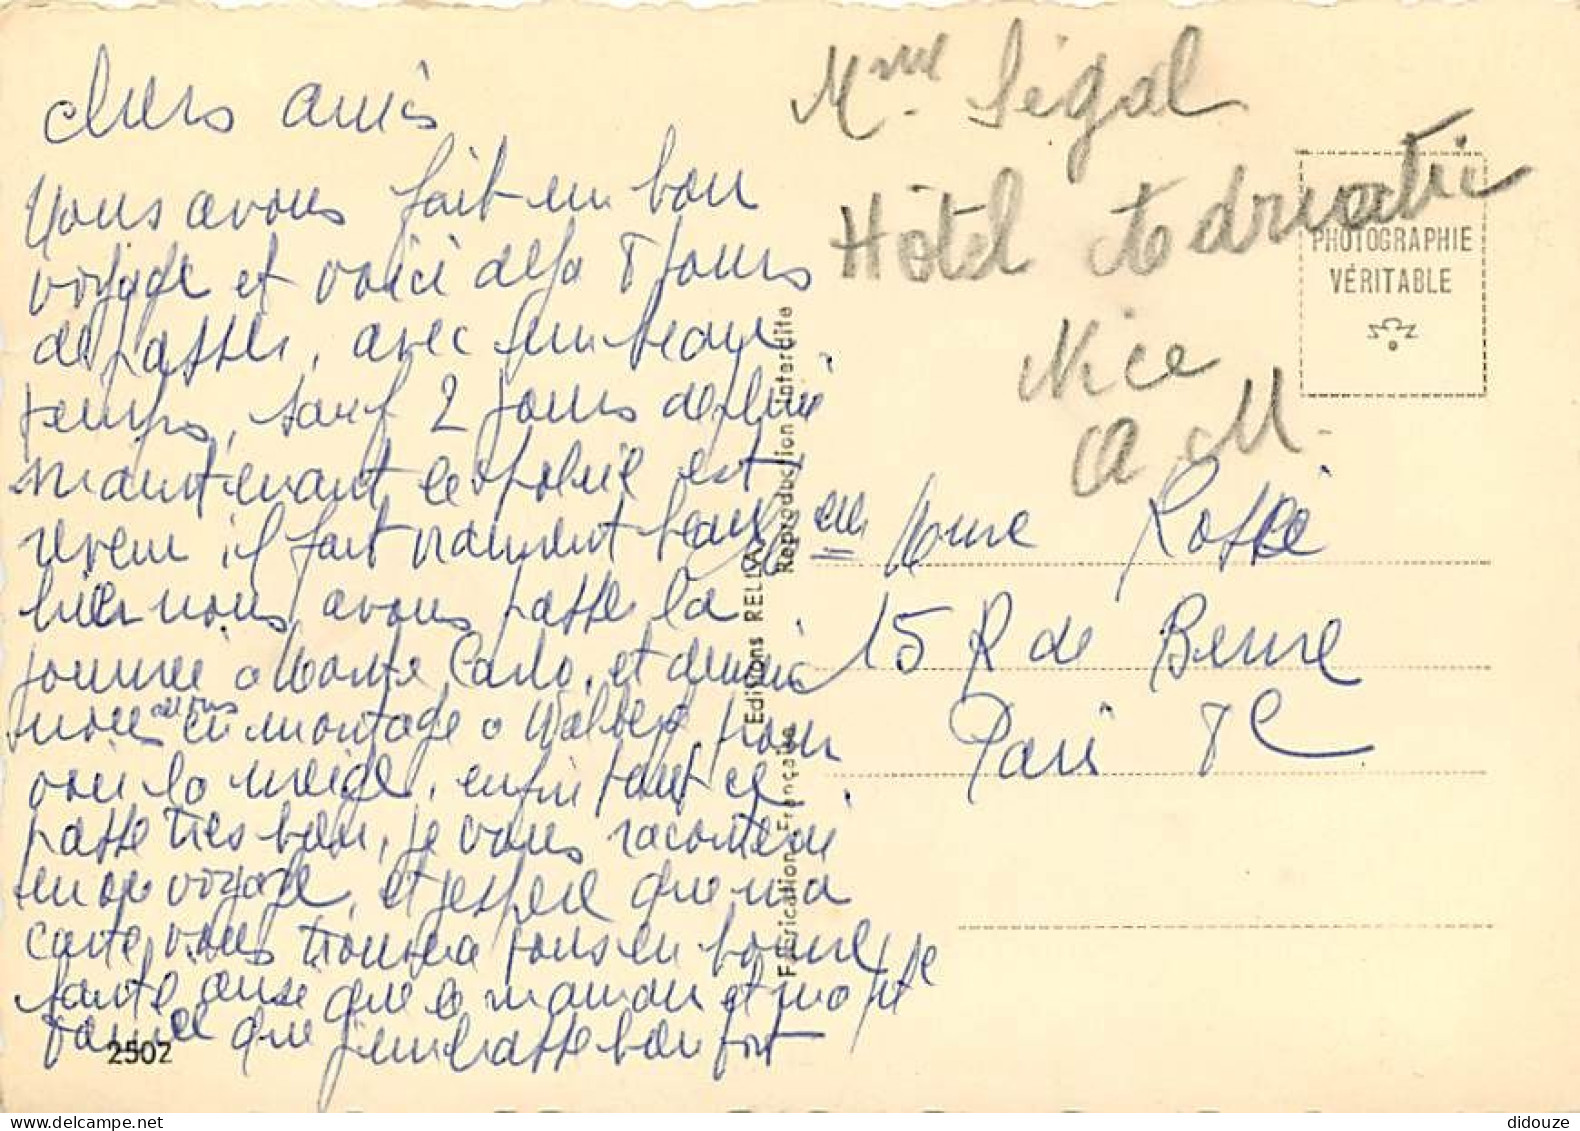 chers amis
Nous avons fait un bon
voyage et voici deja 8 jours
de passer, avec un beau
temps, sauf 2 jours de pluie
maintenant le soleil est
revenu, il fait vraiment beau
hier nous avons passe la
journee a Monte Carlo, et demain
nous allons en montage a Valberg, pour
voir la neige, enfin tout ce
passe tres bon, je vous raconterai
mon voyage, et j'espere que ma
carte vous trouvera tous en bonne
sante ainsi que la maman et
famille que j'embrasse bon fort
2502
Mme Ségal
Hôtel Adriatic
Nice
A. M.
PHOTOGRAPHIE
VÉRITABLE
Mme
15 R de Berne
Paris 8e
Editions RELLA,
Fabrication Française
Reproduction Interdite
didouze